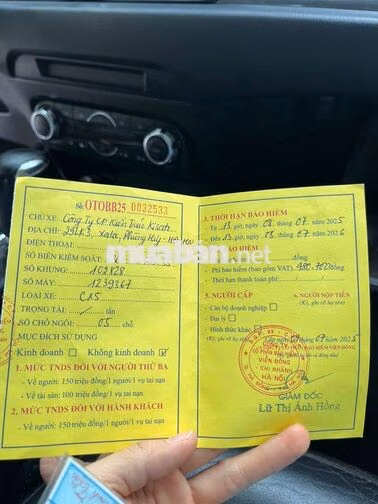 Số: OTOBB25 0032533
CHỦ XE: Công Ty CP Kiến Trúc
ĐỊA CHỈ: 292K3, Xala, Phùng Hưng - HĐ - HN
ĐIỆN THOẠI:
SỐ BIỂN KIỂM SOÁT:
SỐ KHUNG: 102828
SỐ MÁY: 1239367
LOẠI XE: CX5
TRỌNG TẢI: / tấn
SỐ CHỖ NGỒI: 05 chỗ
MỤC ĐÍCH SỬ DỤNG
Kinh doanh Không kinh doanh
1. MỨC TNDS ĐỐI VỚI NGƯỜI THỨ BA
- Về người: 150 triệu đồng/1 vụ tai nạn
- Về tài sản: 100 triệu đồng/1 vụ tai nạn
2. MỨC TNDS ĐỐI VỚI HÀNH KHÁCH
- Về người: 150 triệu đồng/1 vụ tai nạn
3. THỜI HẠN BẢO HIỂM
Từ 13 giờ, ngày 08 tháng 07 năm 2025
Đến 13 giờ, ngày 08 tháng 07 năm 2026
BẢO HIỂM
đồng
- Phí bảo hiểm (bao gồm VAT) 980.700 đồng
- Thời hạn thanh toán phí:
5. NGƯỜI CẤP
6. NGƯỜI NỘP TIỀN
- Cán bộ doanh nghiệp
(Ký, ghi rõ họ tên)
- Đại lý
- Hình thức khác
(Ký, ghi rõ họ tên)
07 2025
CỔ PHẦN BẢO HIỂM
VIỄN ĐÔNG
CHI NHÁNH
HÀ NỘI
GIÁM ĐỐC
Lữ Thị Ánh Hồng
muaban.net